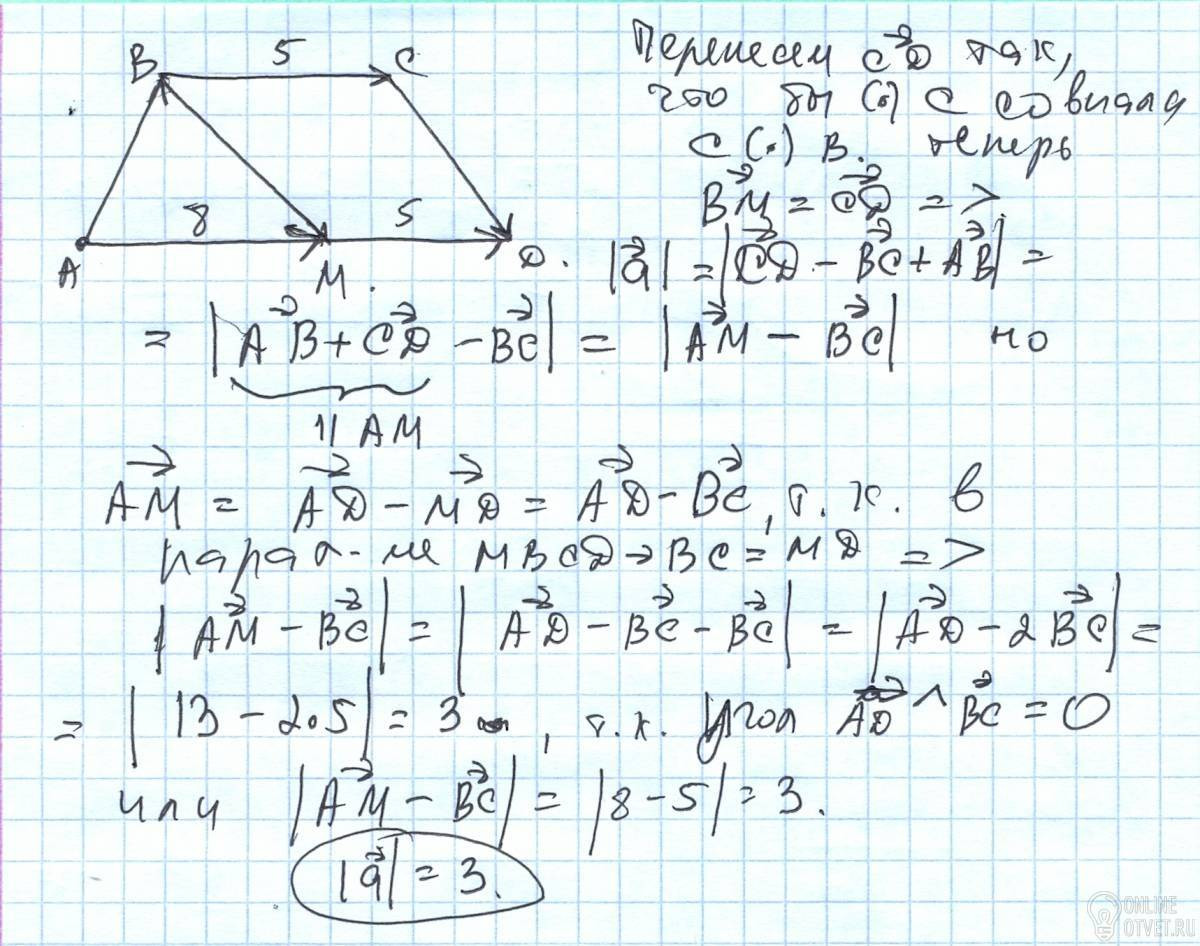 B 5 C
A 8 M. 5 D.
Перенесем CD так,
что бы (·) C совпала
с (·) B. теперь
BM = CD =>
|a| = |CD - BC + AB| =
= |AB + CD - BC| = |AM - BC| но
|| AM
AM = AD - MD = AD - BC, т.к. в
парал-ме MBCD → BC = MD =>
|AM - BC| = |AD - BC - BC| = |AD - 2BC| =
= |13 - 2·5| = 3, т.к. угол AD ^ BC = 0
или |AM - BC| = |8 - 5| = 3.
|a| = 3.
ONLINE
OTVET.RU